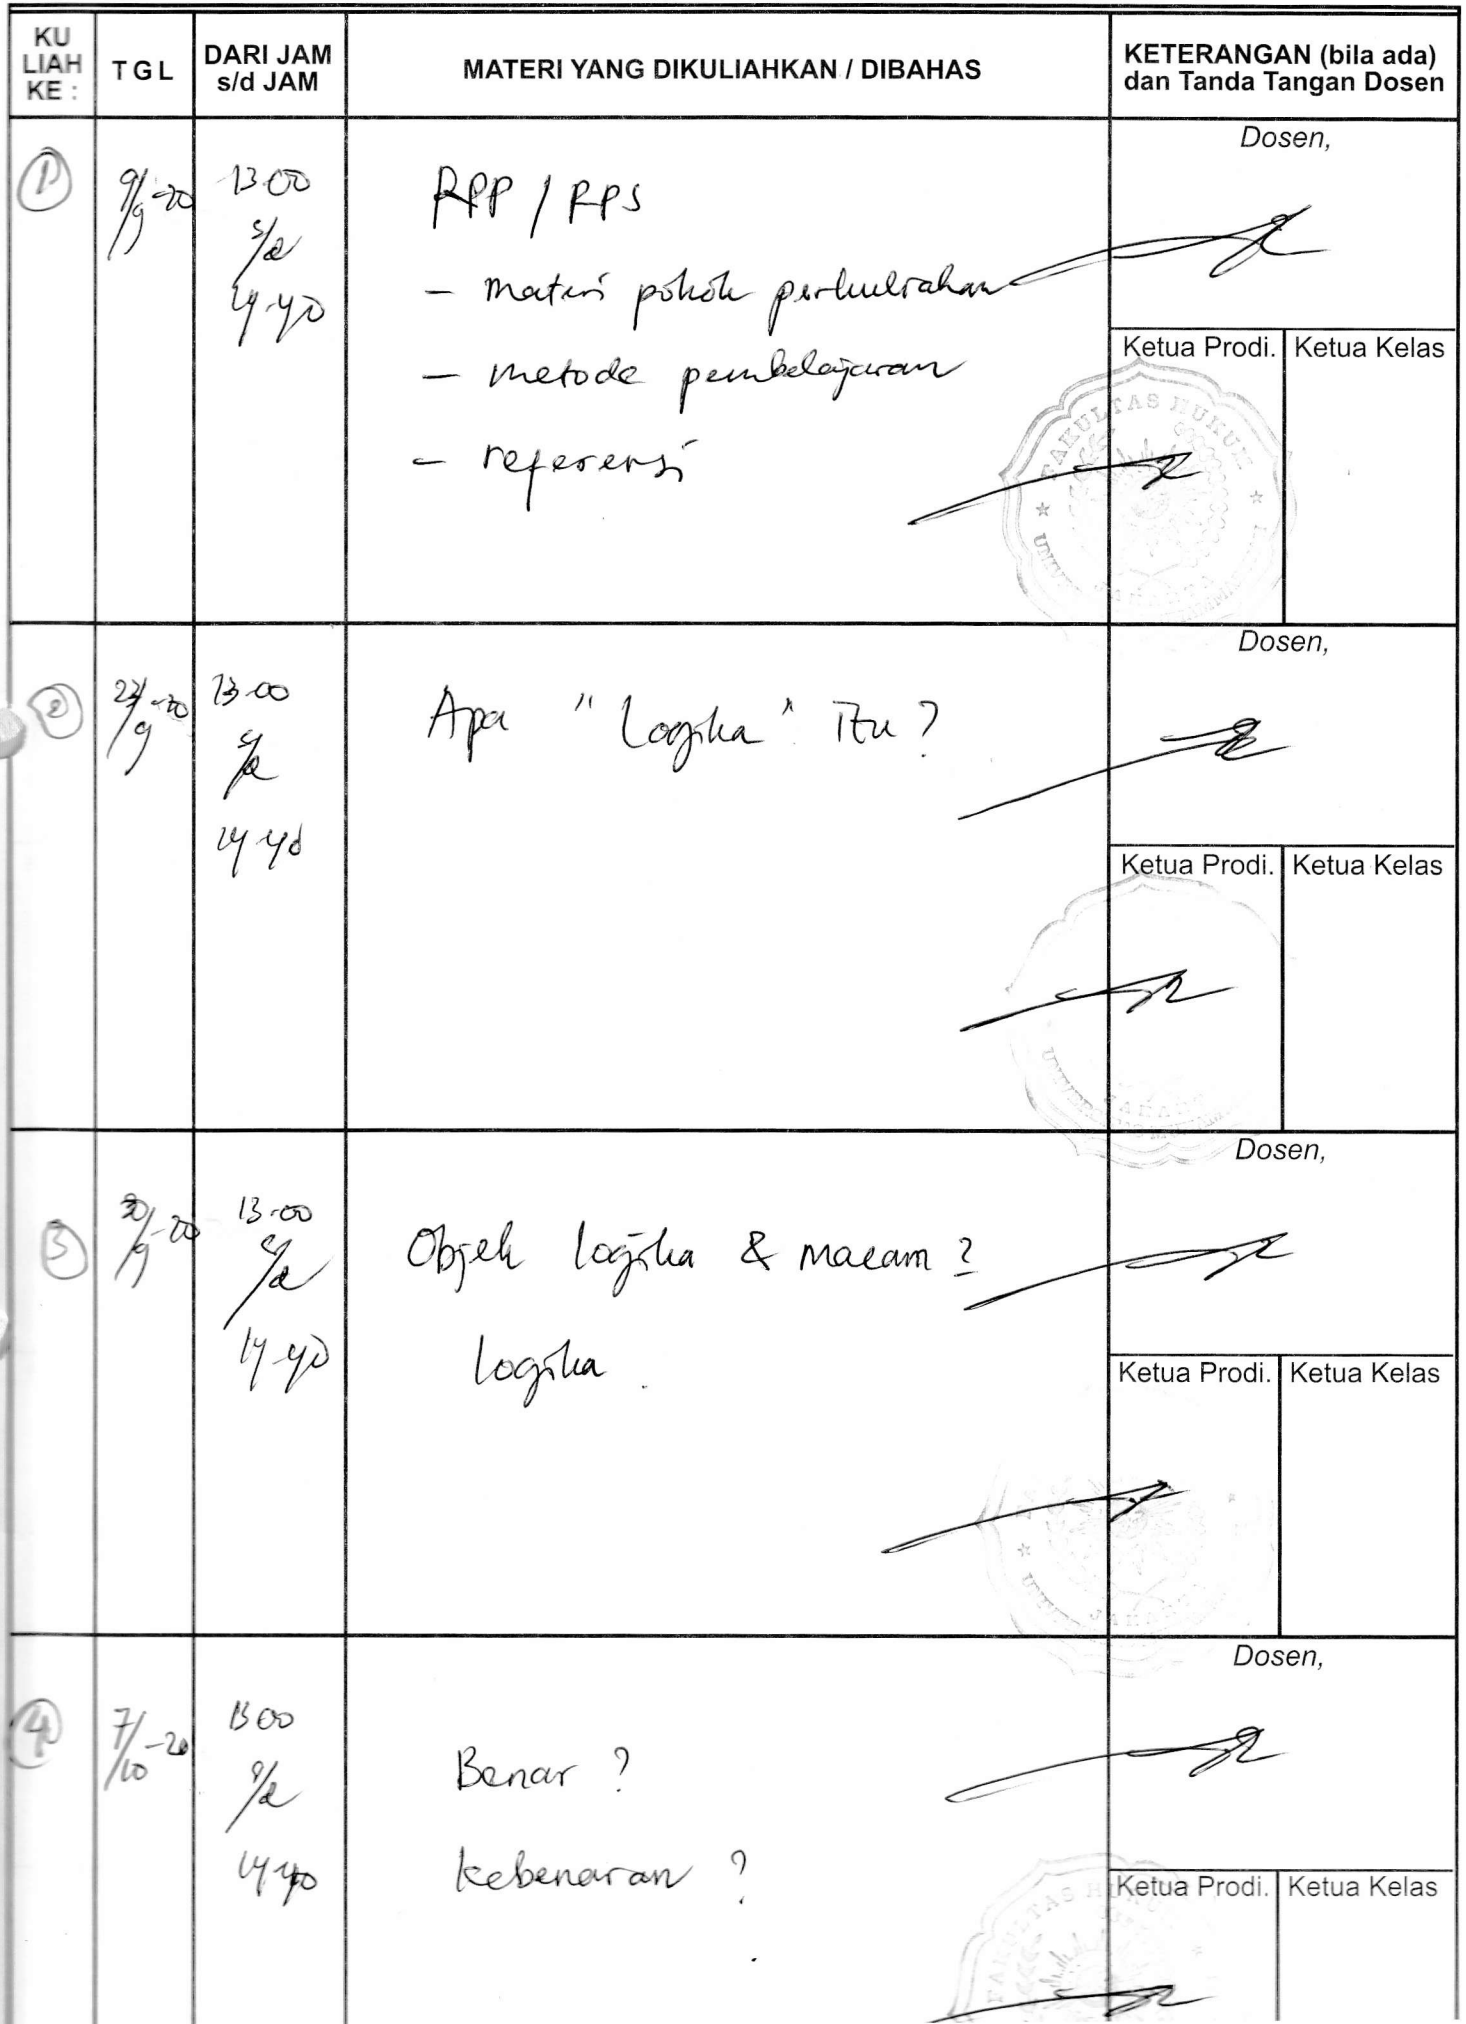 KU LIAH KE :
TGL
DARI JAM s/d JAM
MATERI YANG DIKULIAHKAN / DIBAHAS
KETERANGAN (bila ada) dan Tanda Tangan Dosen
1
9/9-20
13.00
s/d
14.40
RPP / RPS
- Materi pokok perkuliahan
- Metode pembelajaran
- referensi
Dosen,
Ketua Prodi.
Ketua Kelas
FAKULTAS HUKUM
2
/9-20
13.00
s/d
14.40
Apa "Logika" itu?
Dosen,
Ketua Prodi.
Ketua Kelas
3
30/9-20
13.00
s/d
14.40
Objek logika & macam2
logika
Dosen,
Ketua Prodi.
Ketua Kelas
4
7/10-20
13.00
s/d
14.40
Benar ?
kebenaran ?
Dosen,
Ketua Prodi.
Ketua Kelas